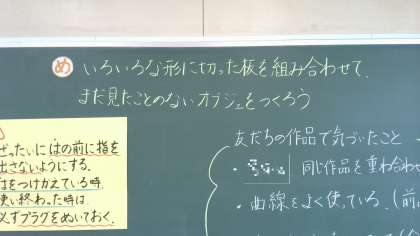 め いろいろな形に切った板を組み合わせて、
まだ見たことのないオブジェをつくろう
ぜったいにはの前に指を
出さないようにする。
をつけかえている時
使い終わった時は
必ずプラグをぬいておく。
友だちの作品で気づいたこと
・同じ作品を重ね合わせ
・曲線をよく使っている。(前